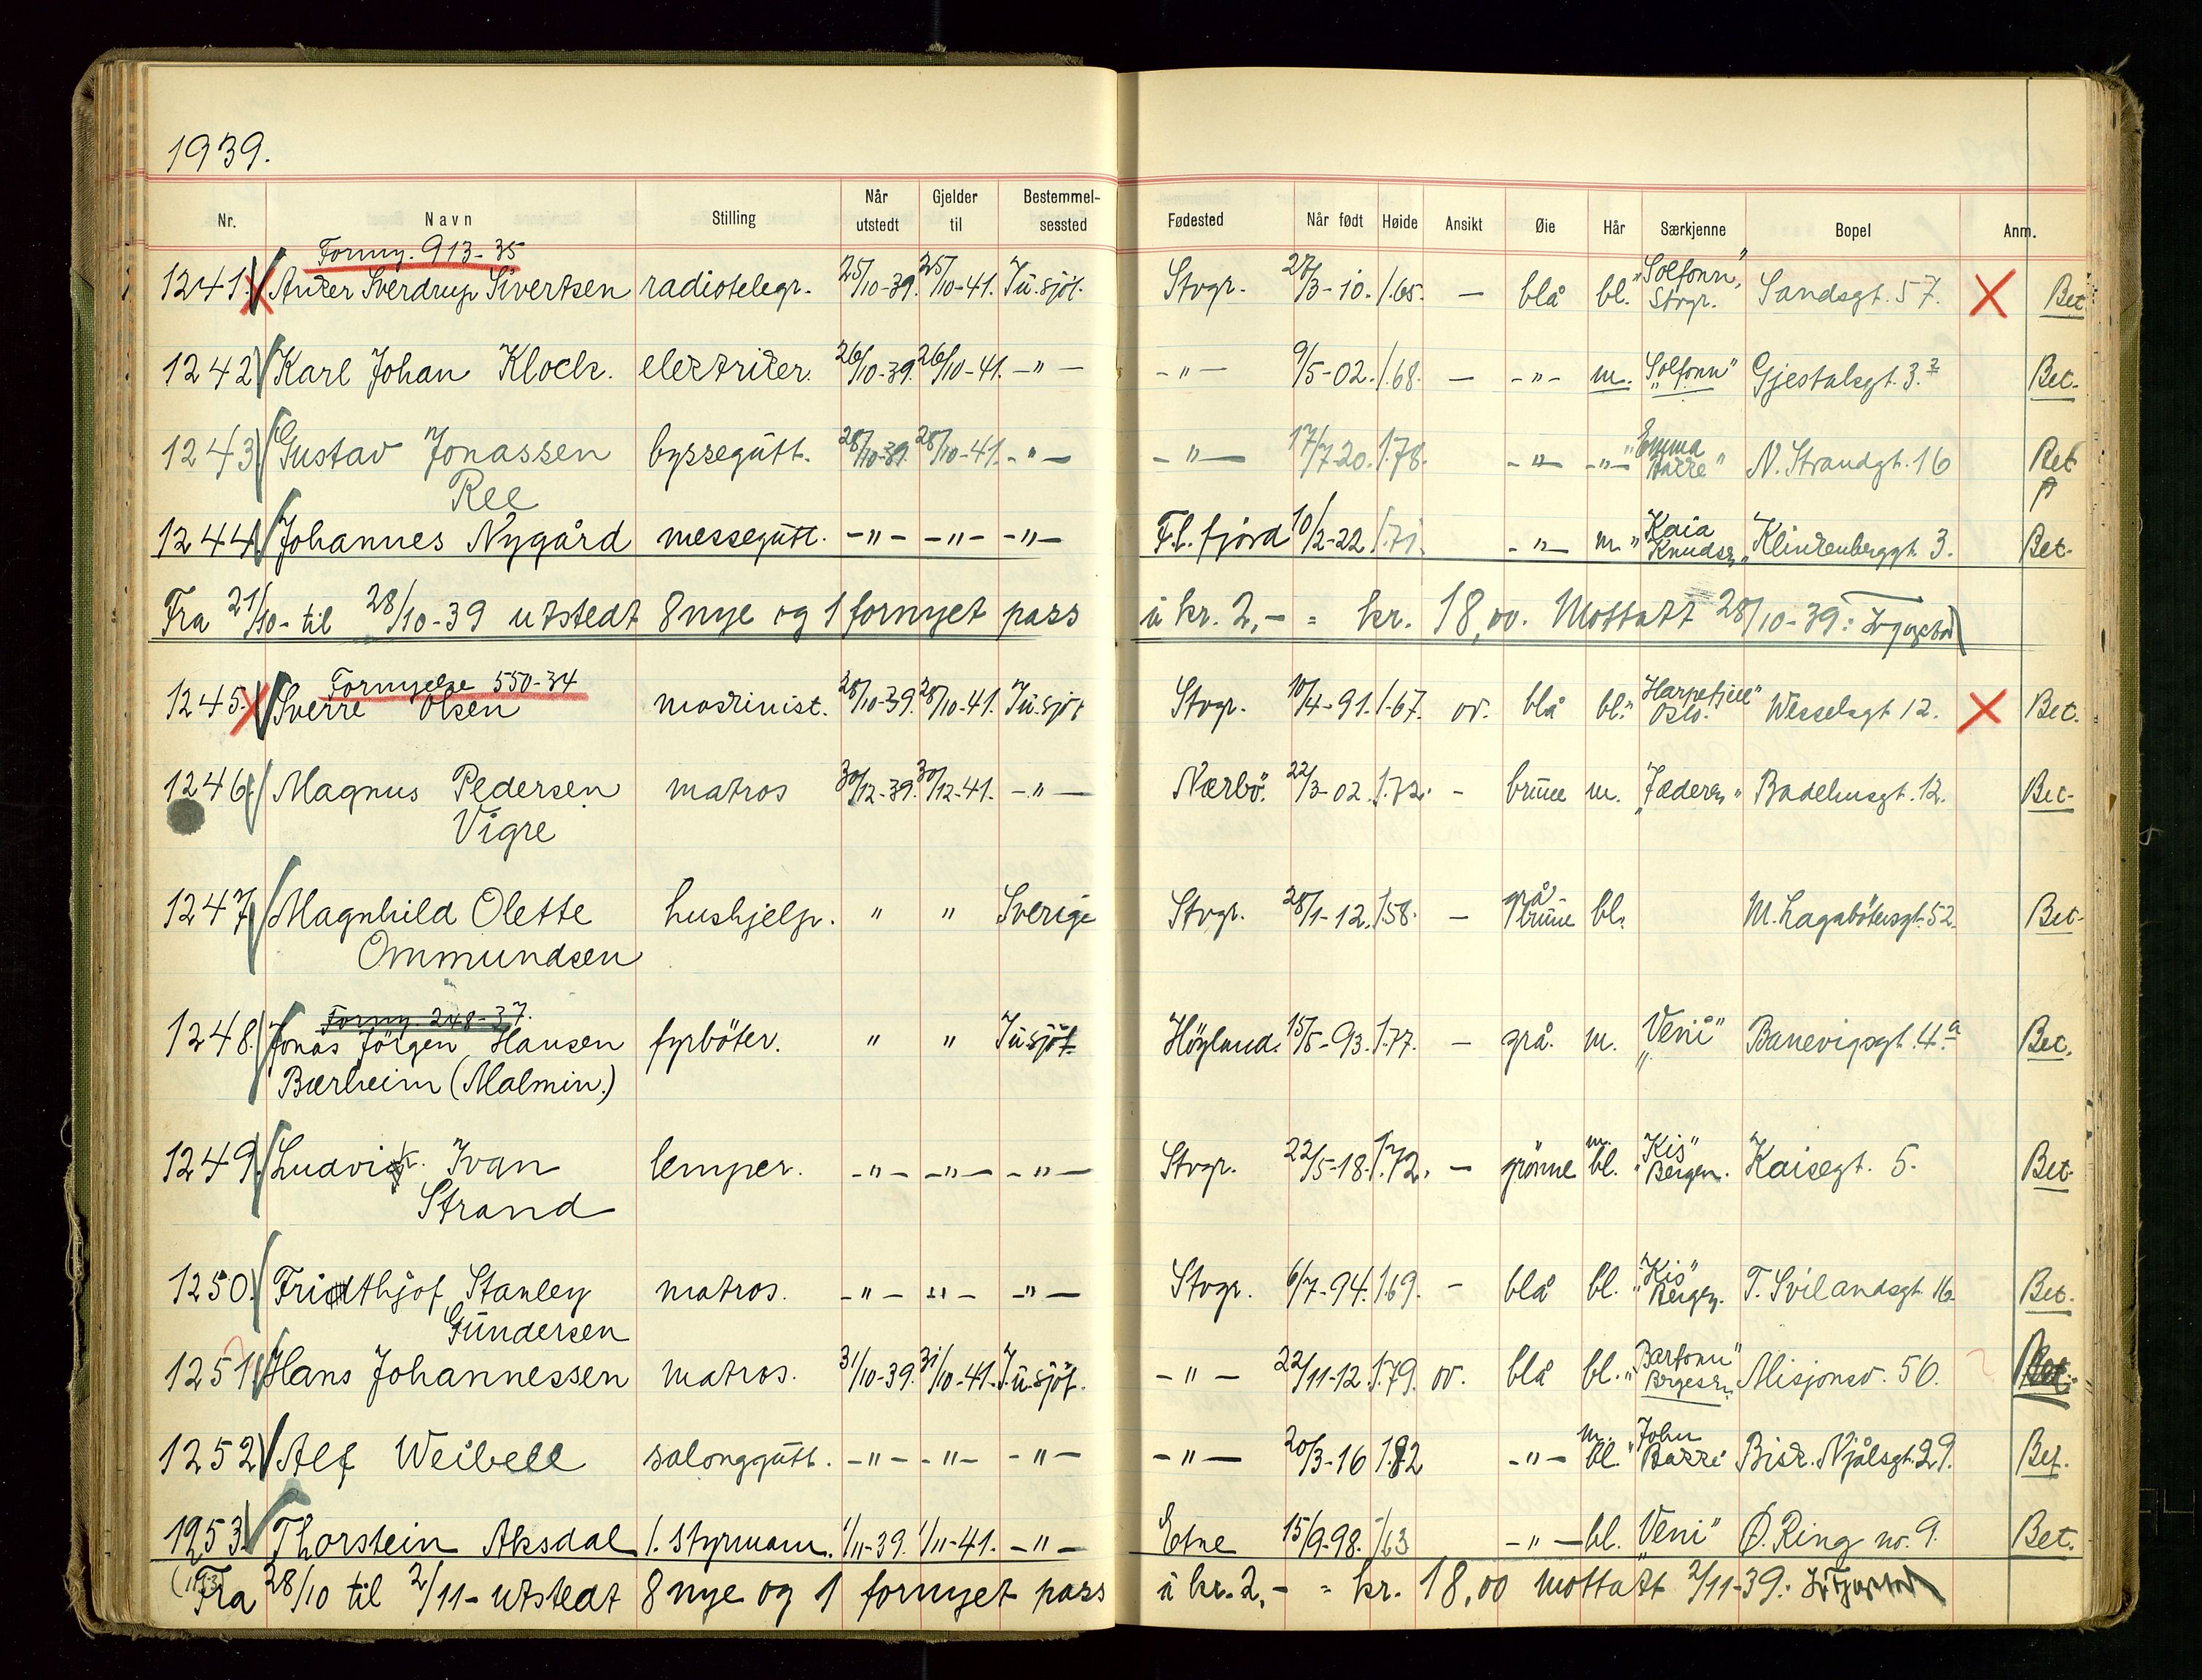 1939.
Nr. Navn Stilling Når utstedt Gjelder til Bestemmelsessted Fødested Når født Høide Ansikt Øie Hår Særkjenne Bopel Anm.
Forny. 913-35
1241. Anker Sverdrup Sivertsen radiotelegr. 25/10-39. 25/10-41. Tú. sjöt. Stvgr. 27/3-10. 1.65. — blå bl. "Solfonn," Stvgr. Sandsgt. 57. X Bet.
1242 Karl Johan Klock. elektriker. 26/10-39. 26/10-41. -"- -"- 9/5-02. 1.68. — -"- m. "Solfonn" Gjestalsgt. 3.² Bet.
1243 Gustav Jonassen byssegútt. 28/10-39. 28/10-41. -"- -"- 17/7-20. 1.78. -"- -"- "Emma Bakke" N. Strandgt. 16 Bet
Ree
1244 Johannes Nygård messegútt. -"- -"- -"- Fl. fjord 10/2-22 1.71. -"- m. "Kaia Knudsen" Klinkenberggt. 3. Bet.
Fra 21/10- til 28/10-39 utstedt 8 nye og 1 fornyet pass à kr. 2,- = kr. 18,00. Mottatt 28/10-39:
Fornyelse 550-34
1245. Sverre Olsen maskinist. 28/10-39. 28/10-41. Tú. sjöt Stvgr. 10/4-91. 1.67. ov. blå bl. "Harpefjell" Oslo. Wesselsgt 12. X Bet.
1246. Magnus Pedersen matros 30/12-39. 30/12-41. -"- Nærbö. 22/3-02. 1.72. - brúne m. "Jæderen" Badehusgt. 12. Bet.
Vigre
1247 Magnhild Olette hushjelp. " " Sverige Stvgr. 28/1-12. 1.58. — grå-brúne bl. M. Lagabötersgt. 52. Bet.
Ommundsen
Forny. 248-37.
1248. Jonas Jörgen Hansen fyrböter. " " Tú sjöt. Höyland. 15/5-93. 1.77. — grå. m. "Veni" Banevigsgt. 4.a Bet.
Bærheim (Malmin.)
1249. Ludvik. Ivan lemper. -"- -"- -"- Stvgr. 22/5-18. 1.72. — grönne m. bl. "Kis" Bergen. Kaisegt. 5. Bet.
Strand
1250. Fridthjof Stanley matros. -"- -"- -"- Stvgr. 6/7-94. 1.69. - blå bl. "Kis" Bergen. T. Svilandsgt. 16. Bet.
Gúndersen
1251. Hans Johannessen matros. 31/10-39. 31/10-41. Tú. sjöt. -"- 22/11-12. 1.79. ov. blå bl. "Barfonn" Bergesen. Misjonsv. 50. ? Bet.
1252 Alf Weibell salonggútt. -"- -"- -"- -"- 20/3-16 1.82 -"- m. bl. "John Bakke" Bisk. Njålsgt. 29. Bet.
1253. Thorstein Aksdal 1. styrmann. 1/11-39. 1/11-41. -"- Etne 15/9-98. 1.63 -"- bl. "Veni" Ø. Ring no. 9. Bet.
Fra 28/10 til 2/11- utstedt 8 nye og 1 fornyet pass à kr. 2,- = kr. 18,00 mottatt 2/11-39: